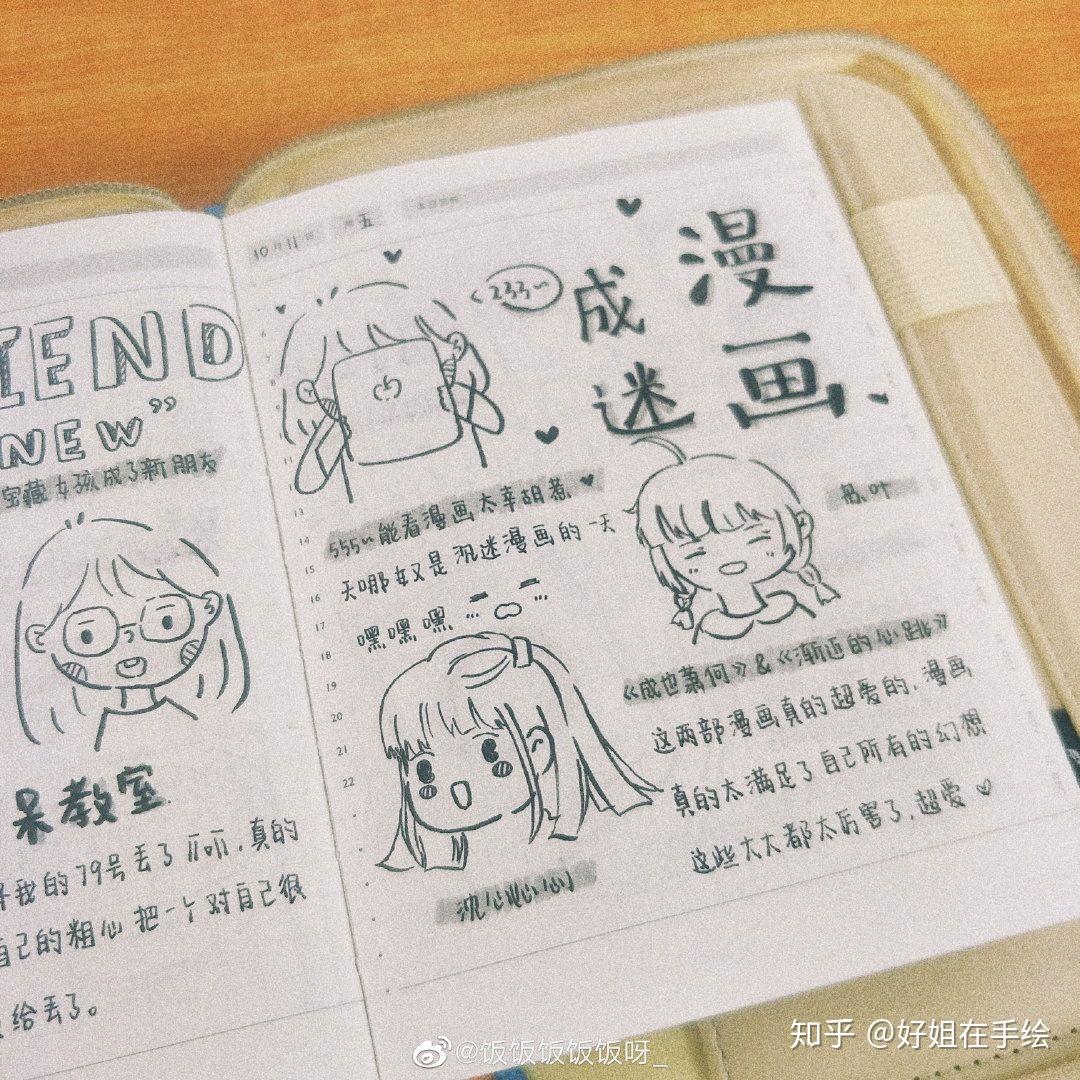 IEND
NEW”
宝藏女孩成了新朋友
呆教室
我的79号丢了，真的
自己的粗心把一个对自己很
给丢了。
10月11日 周五
233~
漫画
成迷
555~能看漫画太幸胡惹
天哪奴又是沉迷漫画的一天
嘿嘿嘿
沈心心
《成也萧何》&《渐近的心跳》
这两部漫画真的超爱的，漫画
真的太满足了自己所有的幻想
这些大大都太厉害了，超爱
13
14
15
16
17
18
19
20
21
22
@饭饭饭饭饭呀_
知乎 @好姐在手绘